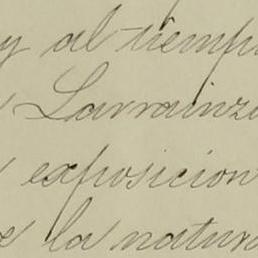 y al tiemp
Larrainz
exposicion
la natur